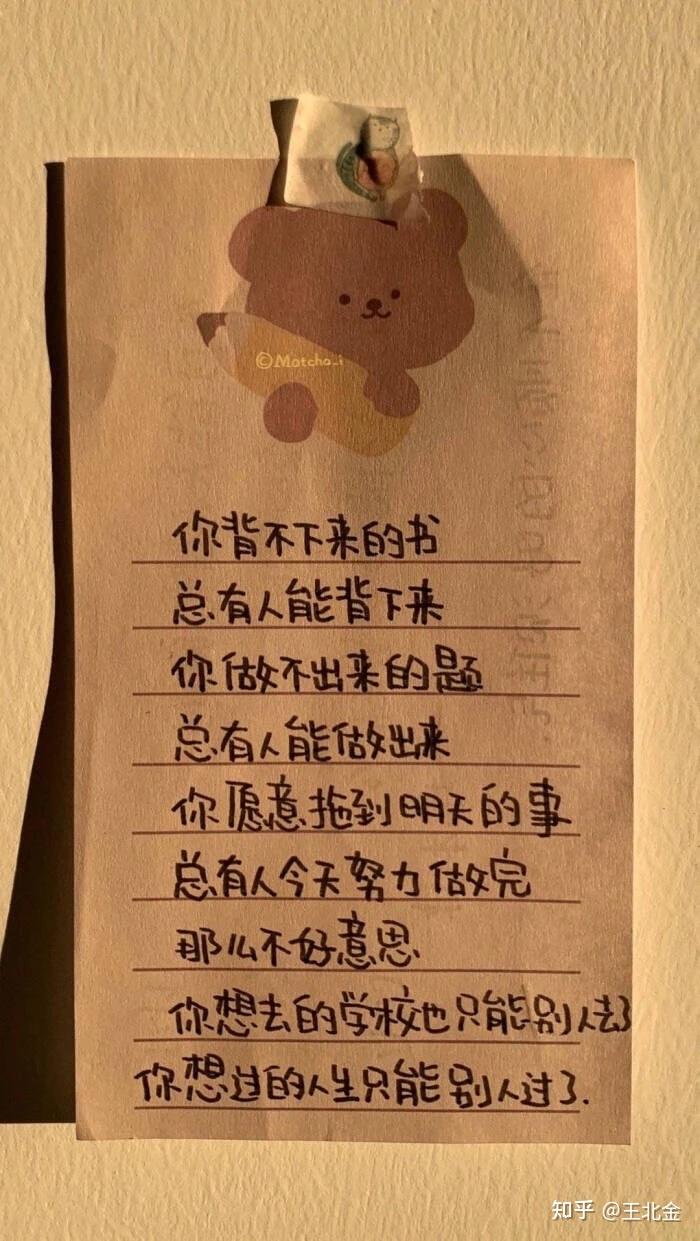 ©Matcha_i
你背不下来的书
总有人能背下来
你做不出来的题
总有人能做出来
你愿意拖到明天的事
总有人今天努力做完
那么不好意思
你想去的学校也只能别人去了
你想过的人生只能别人过了.
知乎 @王北金